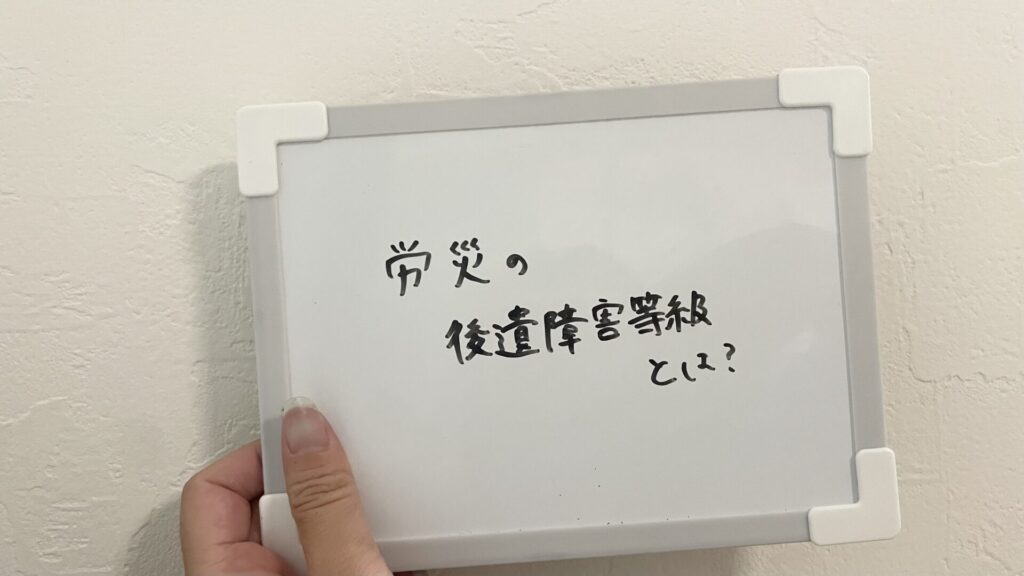 労災の
後遺障害等級
とは?